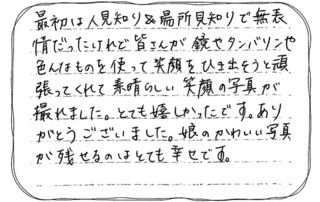 最初は人見知り&場所見知りで無表
情だったけれど皆さんが鏡やタンバリンや
色んなものを使って笑顔をひき出そうと頑
張ってくれて素晴らしい笑顔の写真が
撮れました。とても嬉しかったです。あり
がとうございました。娘のかわいい写真
が残せるのはとても幸せです。